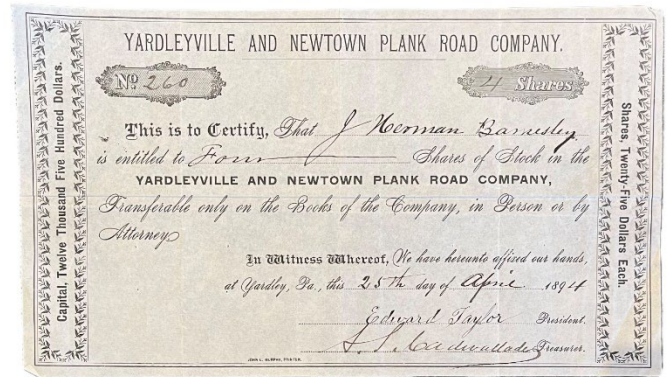 YARDLEYVILLE AND NEWTOWN PLANK ROAD COMPANY.
No 260
4 Shares
This is to Certify, That J Herman Barnesley
is entitled to Four Shares of Stock in the
YARDLEYVILLE AND NEWTOWN PLANK ROAD COMPANY,
Transferable only on the Books of the Company, in Person or by
Attorney
In Witness Whereof, We have hereunto affixed our hands,
at Yardley, Pa., this 25th day of April 1894
Edward Taylor President.
S. S. Cadwallader Treasurer.
JOHN L. MURPHY, PRINTER.
Capital, Twelve Thousand Five Hundred Dollars.
Shares, Twenty-Five Dollars Each.